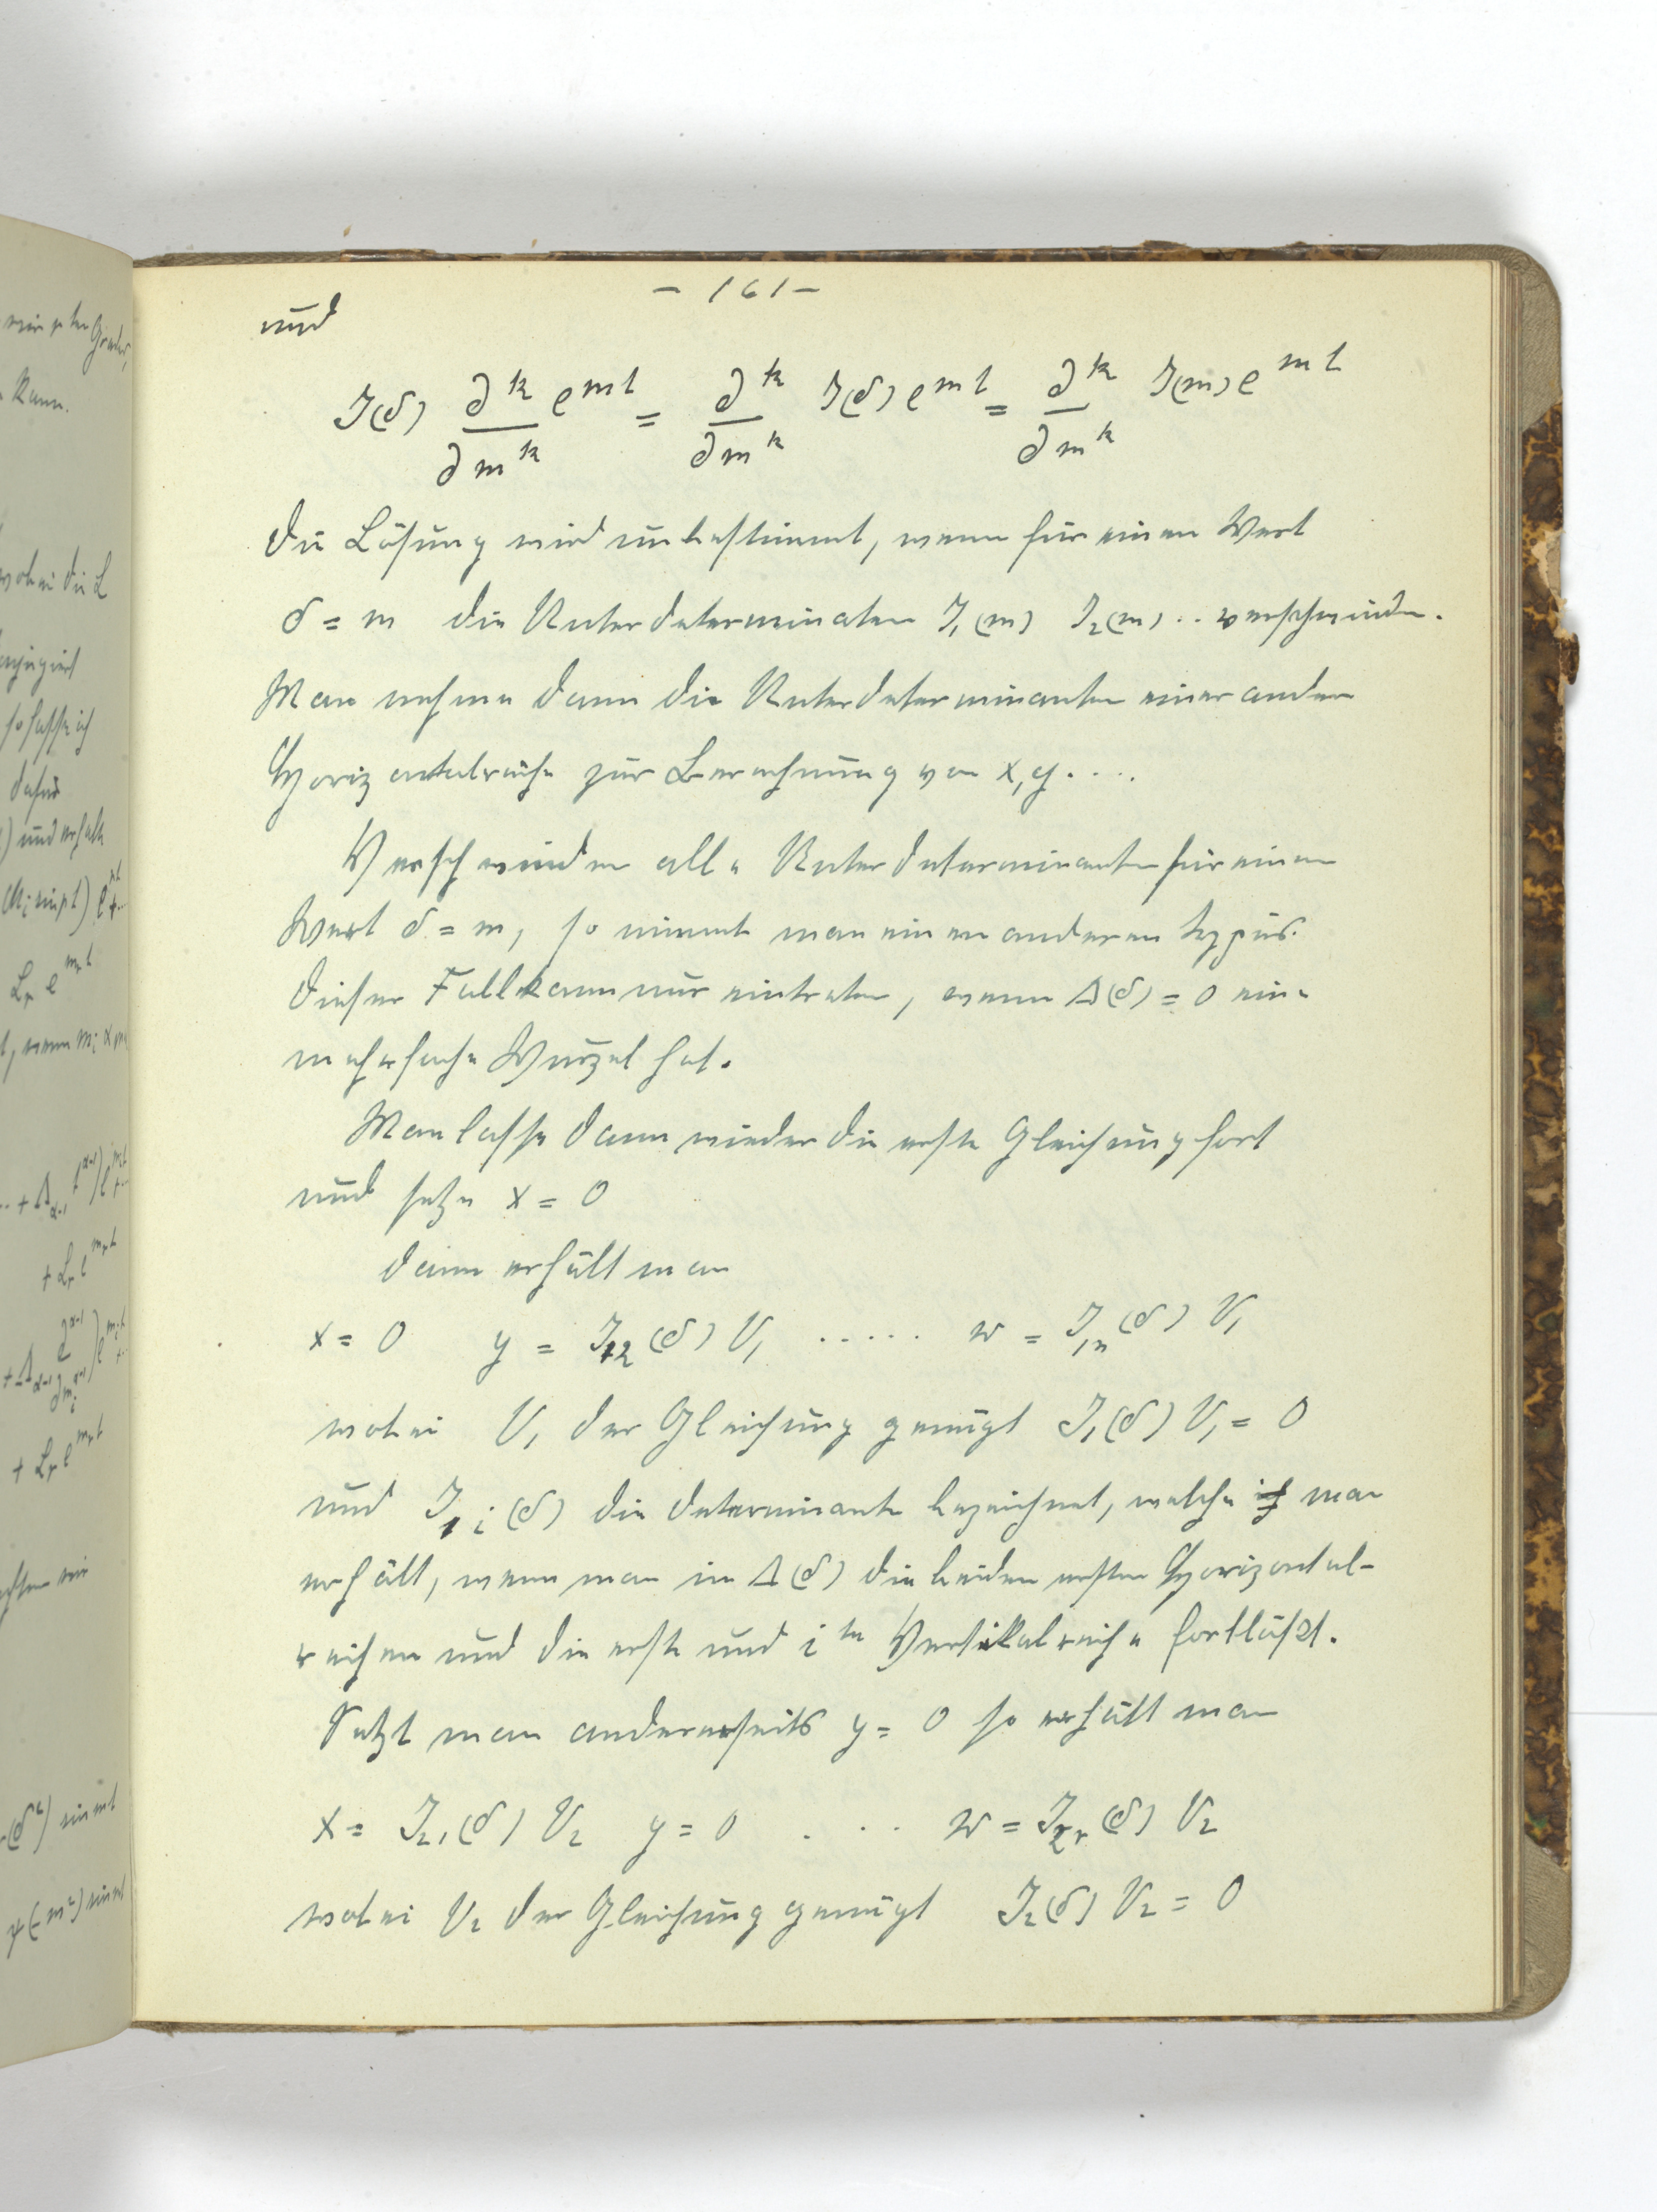 - 161 -
und
J(δ) ∂^k/∂m^k e^{mt} = ∂^k/∂m^k J(δ) e^{mt} = ∂^k/∂m^k J(m) e^{mt}
Die Lösung wird unbestimmt, wenn für einen Wert
δ = m die Unterdeterminaten J₁(m) J₂(m) .. verschwinden.
Man nehme dann die Unterdeterminanten einer andern
Horizontalreihe zur Berechnung von x, y ....
Verschwinden alle Unterdeterminanten für einen
Wert δ = m, so nimmt man einen anderen Typus.
Dieser Fall kann nur eintreten, wenn Δ(δ) = 0 eine
mehrfache Wurzel hat.
Man lasse dann wieder die erste Gleichung fort
und setze x = 0
dann erhält man
x = 0 y = J₁₂(δ) V₁ ..... w = J₁ₙ(δ) V₁
wobei V₁ der Gleichung genügt J₁(δ) V₁ = 0
und J₁ᵢ(δ) die Determinante bezeichnet, welche man
erhält, wenn man in Δ(δ) die beiden ersten Horizontal-
reihen und die erste und i te Vertikalreihe fortläßt.
Setzt man andererseits y = 0 so erhält man
x = J₂₁(δ) V₂ y = 0 . .. w = J₂ᵣ(δ) V₂
wobei V₂ der Gleichung genügt J₂(δ) V₂ = 0